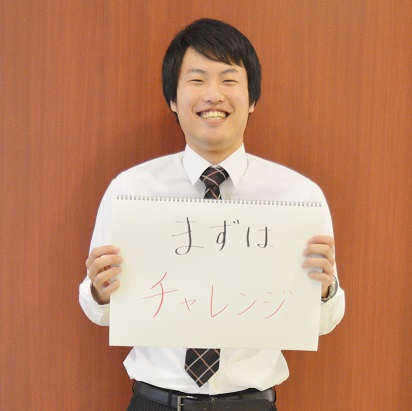 まずは
チャレンジ